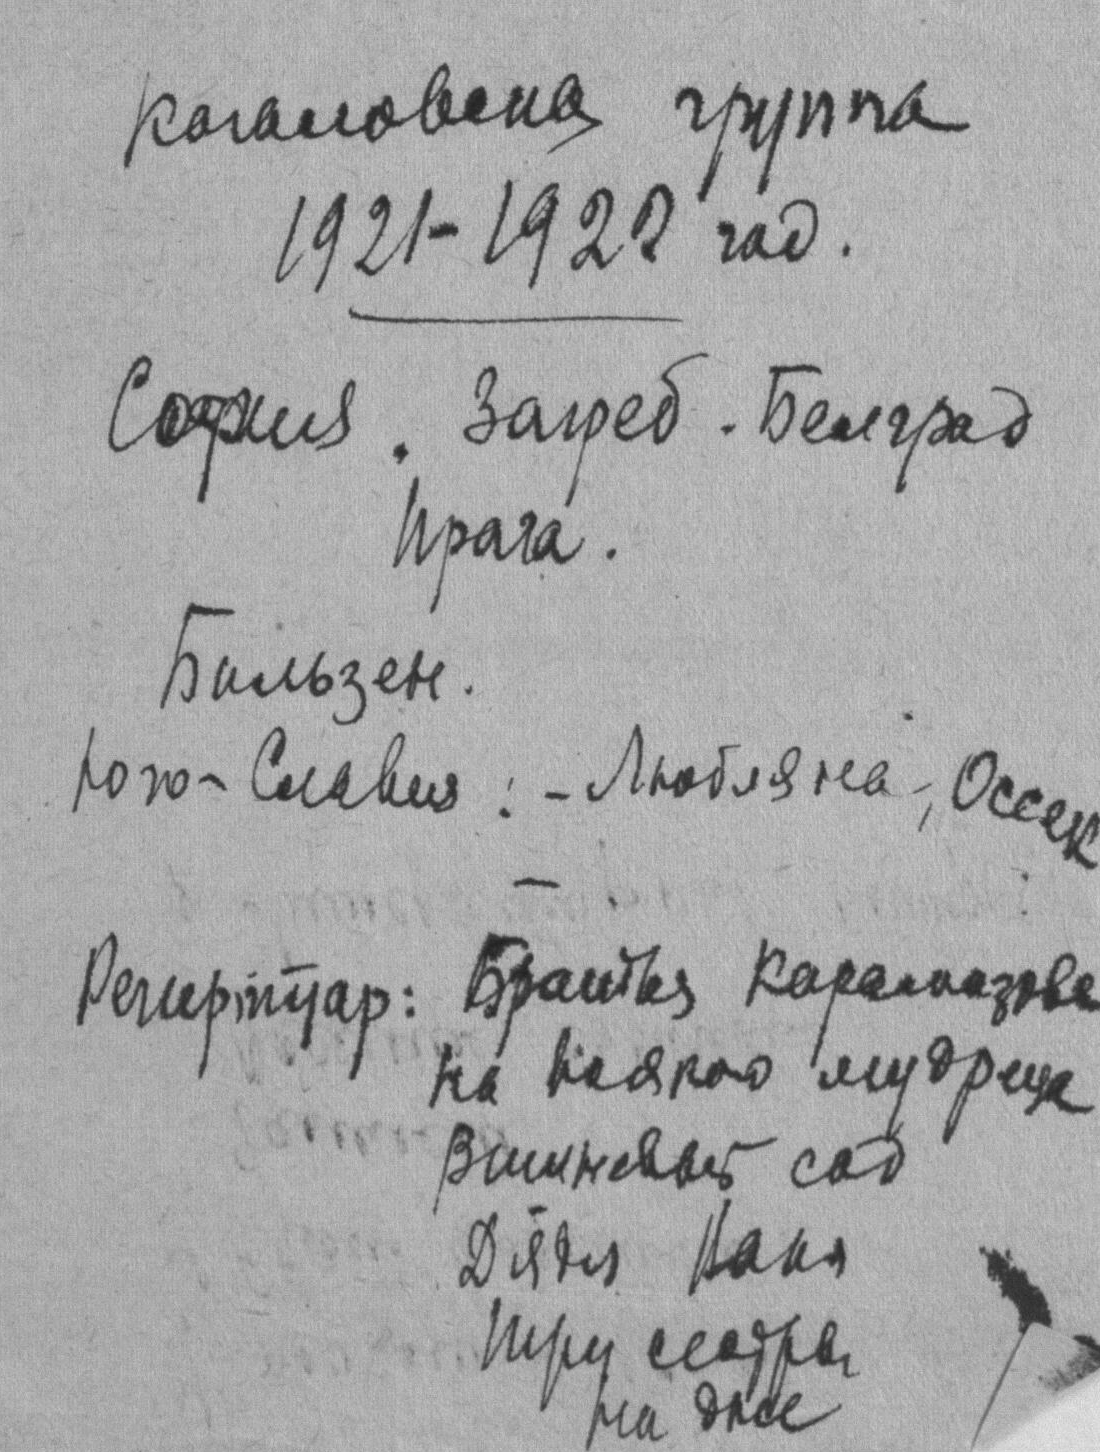 Качаловская группа
1921-1922 год.
София. Загреб. Белград
Прага.
Бильзен.
Юго-Славия: - Любляна, Оссек
Репертуар: Братья Карамазовы
На всякого мудреца
Вишневый сад
Дядя Ваня
Три сестры
На дне